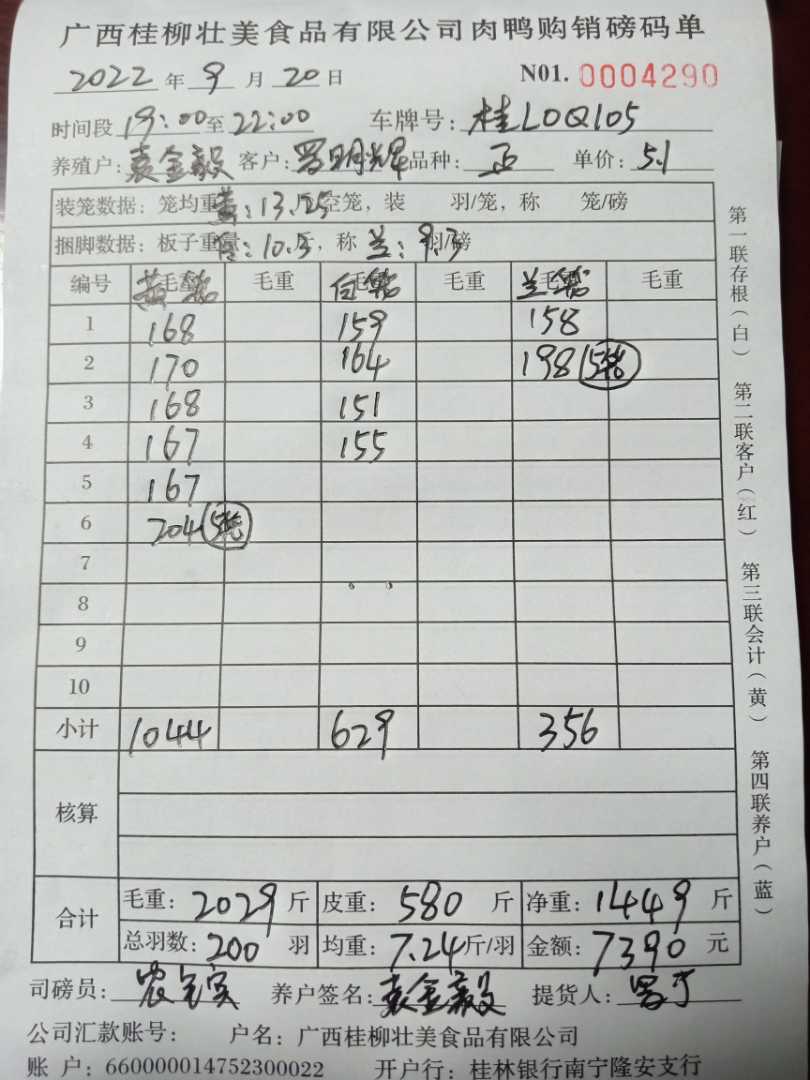 广西桂柳壮美食品有限公司肉鸭购销磅码单
2022 年 9 月 20 日 N01. 0004290
时间段 19:00 至 22:00 车牌号: 桂L0Q105
养殖户: 袁金毅 客户: 罗明辉 品种: 正 单价: 5.1
装笼数据: 笼均重 黄: 13.25 空笼, 装 羽/笼, 称 笼/磅
捆脚数据: 板子重量 白: 10.5 斤, 称 兰: 9.3 羽/磅
编号 黄笼 毛重 白笼 毛重 兰笼 毛重
1 168 159 158
2 170 164 198 5笼
3 168 151
4 167 155
5 167
6 204 5笼
7
8
9
10
小计 1044 629 356
核算
合计 毛重: 2029 斤 皮重: 580 斤 净重: 1449 斤
总羽数: 200 羽 均重: 7.24 斤/羽 金额: 7390 元
司磅员: 农 养户签名: 袁金毅 提货人: 罗
公司汇款账号: 户名: 广西桂柳壮美食品有限公司
账 户: 660000014752300022 开户行: 桂林银行南宁隆安支行
第一联存根(白) 第二联客户(红) 第三联会计(黄) 第四联养户(蓝)